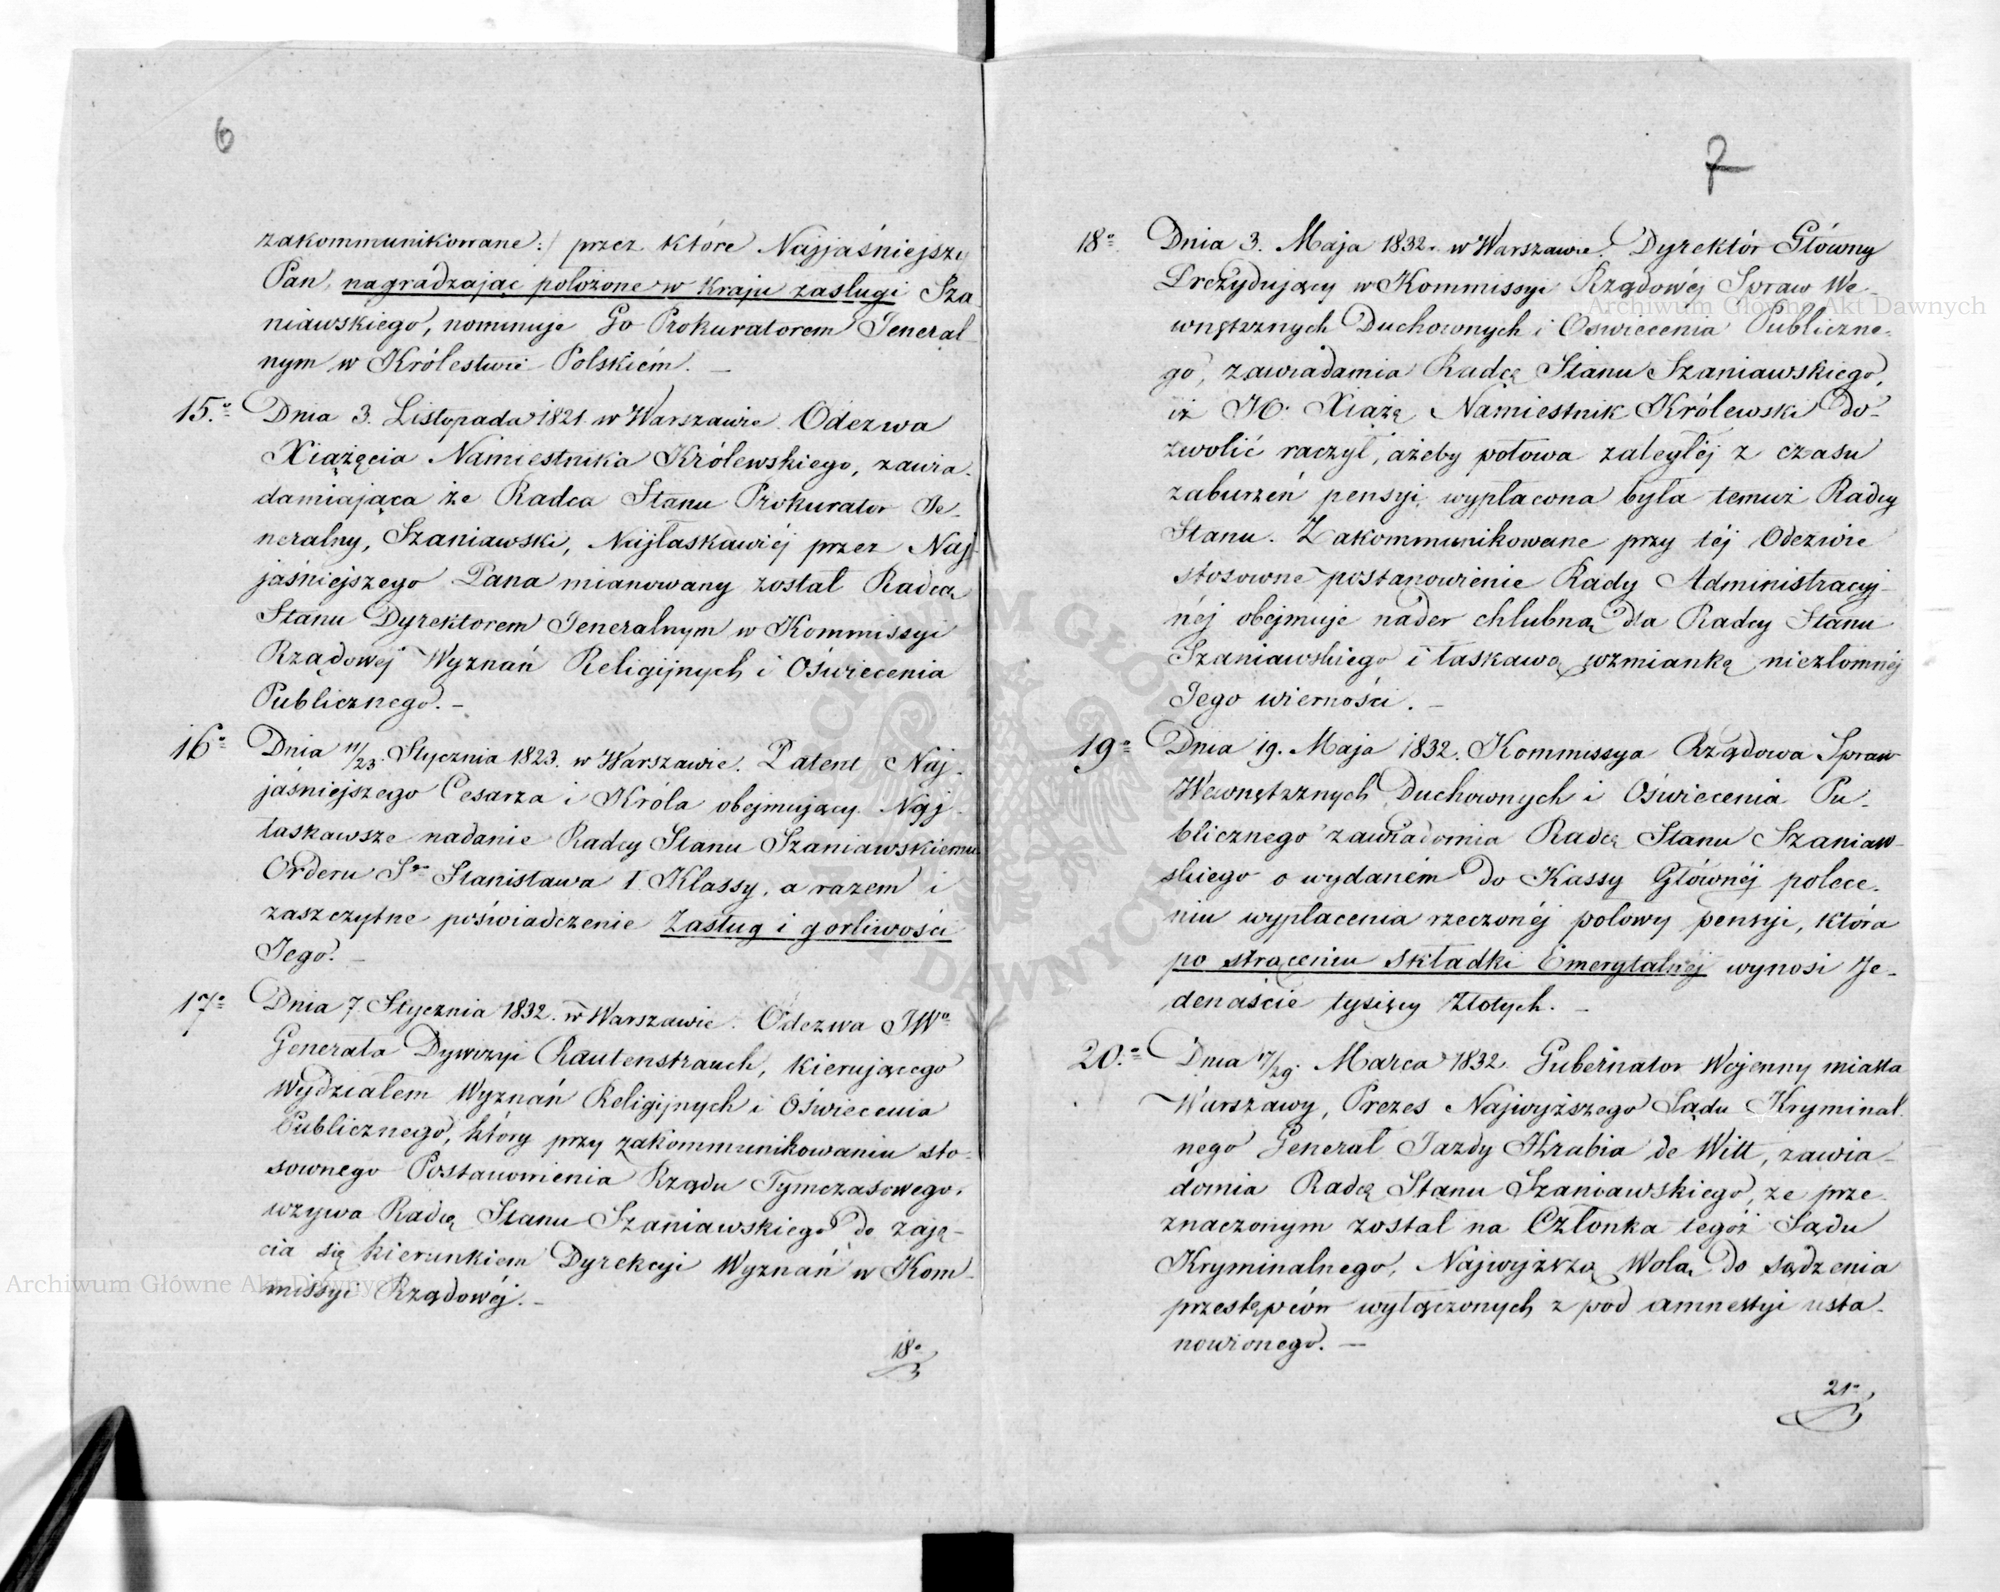 6
zakommunikowane:/ przez które Najjaśniejszy
Pan, nagradzając położone w kraju zasługi Sza
niawskiego, nominuje Go Prokuratorem Jeneral
nym w Królestwie Polskiém. _
15.° Dnia 3. Listopada 1821. w Warszawie. Odezwa
Xiążęcia Namiestnika Królewskiego, zawia-
damiająca że Radca Stanu Prokurator Je-
neralny, Szaniawski, Najłaskawiéj przez Naj
jaśniejszego Pana mianowany został Radcą
Stanu Dyrektorem Jeneralnym w Kommissyi
Rządowéj Wyznań Religijnych i Oświecenia
Publicznego. _
16° Dnia 11/23. Stycznia 1823. w Warszawie. Patent Naj-
jaśniejszego Cesarza i Króla obejmujący Naj-
łaskawsze nadanie Radcy Stanu Szaniawskiemu
Orderu Sgo Stanisława I. Klassy, a razem i
zaszczytne poświadczenie Zasług i gorliwości
Jego. _
17° Dnia 7 Stycznia 1832. w Warszawie. Odezwa JWo
Generała Dywizyi Rautenstrauch, kierującego
Wydziałem Wyznań Religijnych i Oświecenia
Publicznego, który przy zakommunikowaniu sto-
sownego Postanowienia Rządu Tymczasowego,
wzywa Radcę Stanu Szaniawskiego do zaję-
cia się kierunkiem Dyrekcyi Wyznań w Kom-
missyi Rządowéj. _
18°
7
18° Dnia 3. Maja 1832. w Warszawie. Dyrektór Główny
Prezydujący w Kommissyi Rządowéj Spraw We-
wnętrznych Duchownych i Oświecenia Publiczne-
go, zawiadamia Radcę Stanu Szaniawskiego,
iż JO. Xiążę Namiestnik Królewski do-
zwolić raczył, ażeby połowa zaległéj z czasu
zaburzeń pensyi, wypłacona była temuż Radcy
Stanu. Zakommunikowane przy téj Odezwie
stosowne postanowienie Rady Administracyj-
néj obejmuje nader chlubną dla Radcy Stanu
Szaniawskiego i łaskawą wzmiankę niezłomnéj
Jego wierności. _
19° Dnia 19. Maja 1832. Kommissya Rządowa Spraw
Wewnętrznych Duchownych i Oświecenia Pu-
blicznego zawiadomia Radcę Stanu Szaniaw-
skiego o wydaném do Kassy Głównéj polece-
niu wypłacenia rzeczonéj połowy pensyi, która
po strąceniu składki Emerytalnéj wynosi Je-
denaście tysięcy Złotych. _
20.° Dnia 17/29. Marca 1832. Gubernator Wojenny miasta
Warszawy, Prezes Najwyższego Sądu Kryminal-
nego Generał Jazdy Hrabia de Witt, zawia-
domia Radcę Stanu Szaniawskiego, że prze-
znaczonym został na Członka tegóż Sądu
Kryminalnego, Najwyższą Wolą do sądzenia
przestępców wyłączonych z pod amnestyi usta-
nowionego. _
21°
Archiwum Główne Akt Dawnych
Archiwum Główne Akt Dawnych
ARCHIWUM GŁÓWNE AKT DAWNYCH